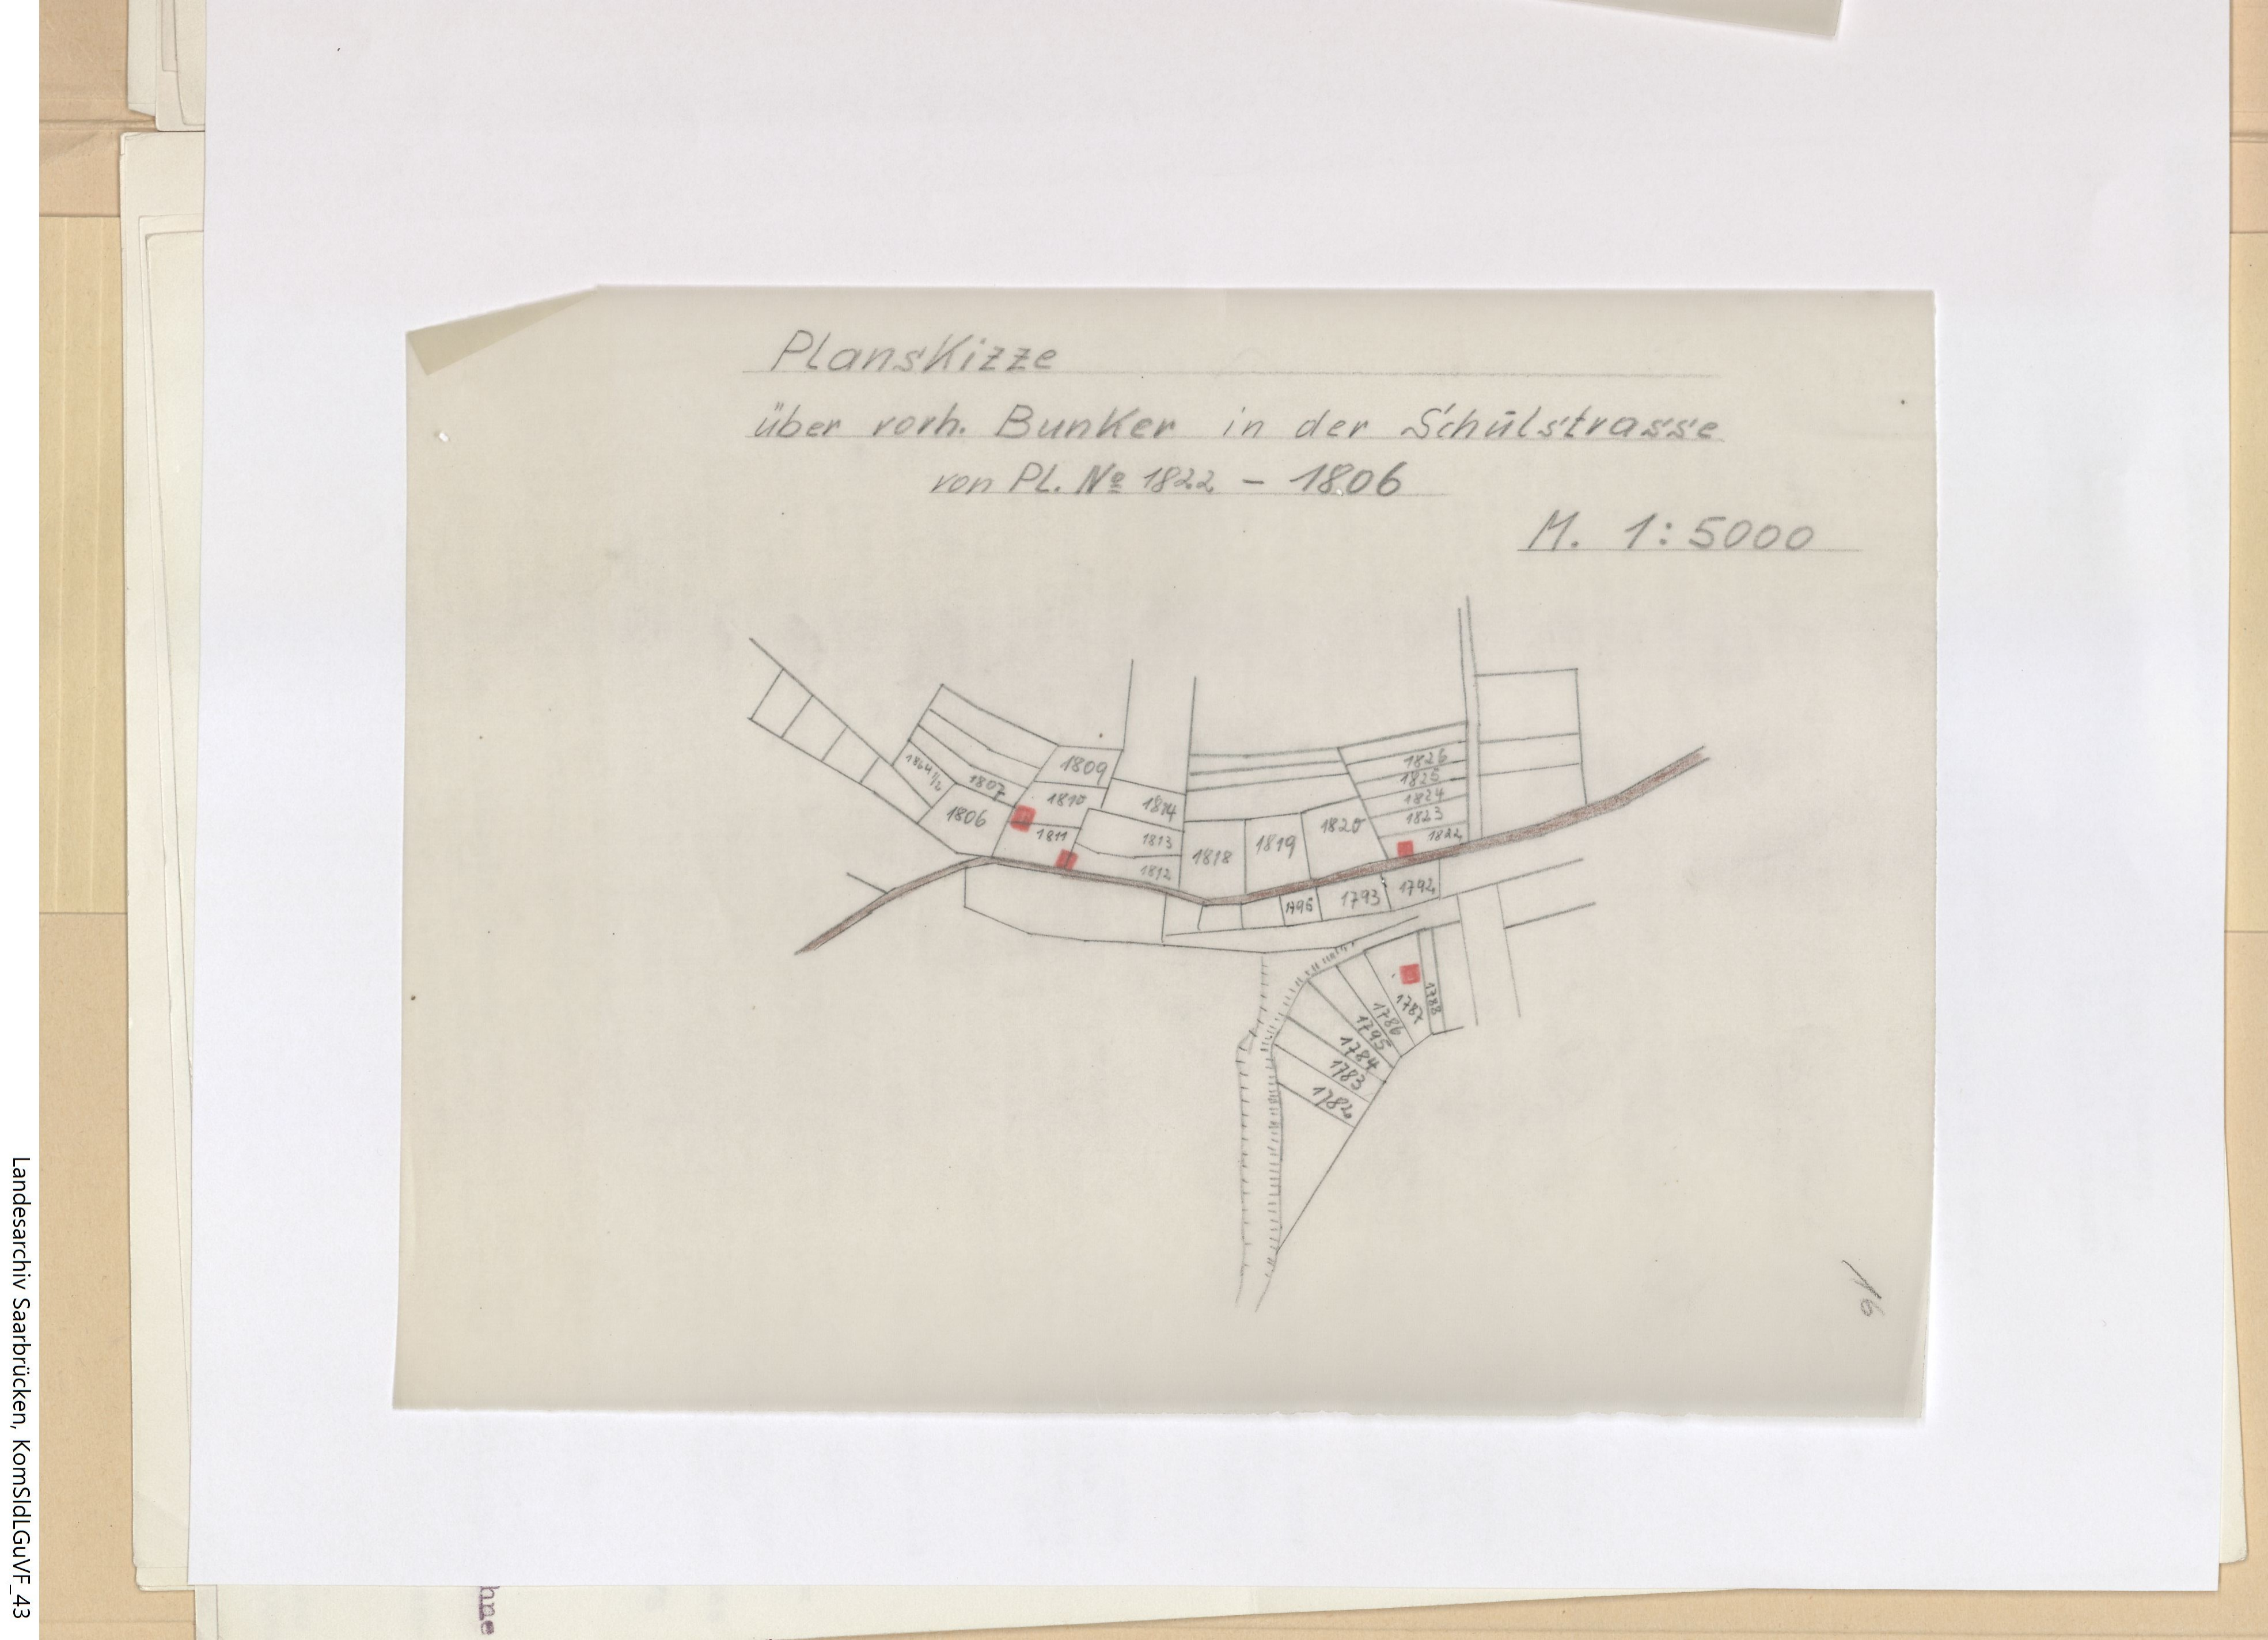 Planskizze
über vorh. Bunker in der Schulstrasse
von Pl. № 1822 - 1806
M. 1:5000
1826
1825
1824
1823
1822
1809
1810
1811
1814
1813
1812
1807
1864 1/2
1806
1818
1819
1820
1796
1793
1792
1788
1787
1786
1795
1784
1783
1782
16
hne
Landesarchiv Saarbrücken, KomSldLGuVF_43